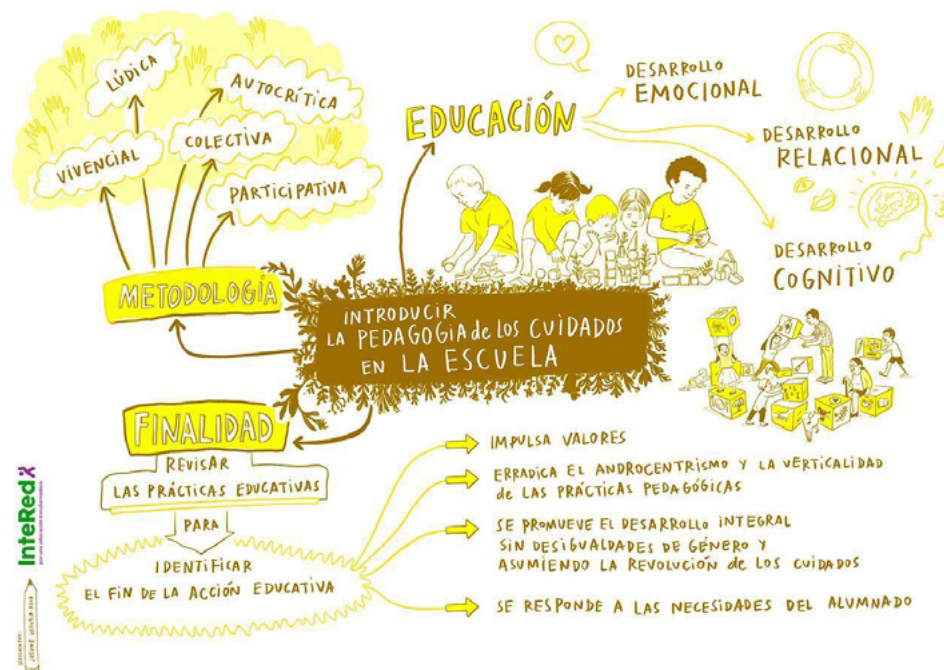 LÚDICA
AUTOCRÍTICA
VIVENCIAL
COLECTIVA
PARTICIPATIVA
METODOLOGÍA
EDUCACIÓN
DESARROLLO
EMOCIONAL
DESARROLLO
RELACIONAL
DESARROLLO
COGNITIVO
INTRODUCIR
LA PEDAGOGIA de LOS CUIDADOS
EN LA ESCUELA
FINALIDAD
REVISAR
LAS PRÁCTICAS EDUCATIVAS
PARA
IDENTIFICAR
EL FIN DE LA ACCIÓN EDUCATIVA
IMPULSA VALORES
ERRADICA EL ANDROCENTRISMO Y LA VERTICALIDAD
de LAS PRÁCTICAS PEDAGÓGICAS
SE PROMUEVE EL DESARROLLO INTEGRAL
SIN DESIGUALDADES DE GÉNERO Y
ASUMIENDO LA REVOLUCIÓN DE LOS CUIDADOS
SE RESPONDE A LAS NECESIDADES DEL ALUMNADO
InteRed